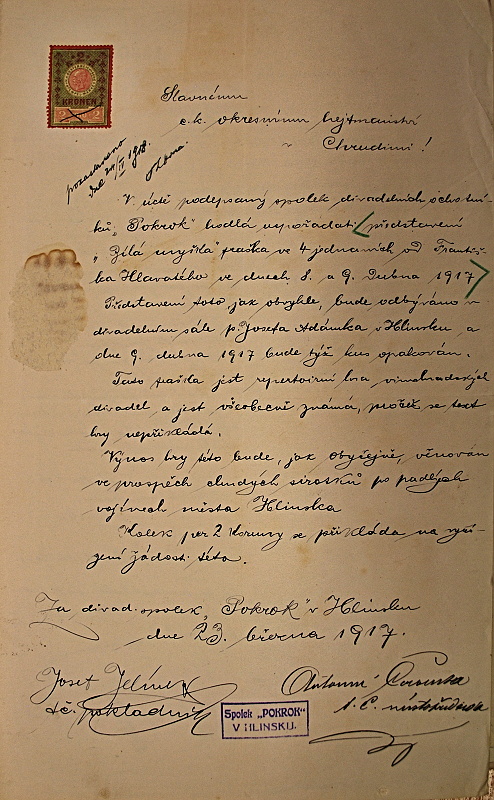 KRONEN
2 2
Slavnému
c.k. okresnímu hejtmanství
v Chrudimi!
V úctě podepsaný spolek divadelních ochotní-
ků „Pokrok" hodlá uspořádati představení
„Bílá myška" fraška ve 4 jednáních od Františ-
ka Hlavatého ve dnech 8. a 9. Dubna 1917
Představení toto, jak obvykle, bude odbýváno v
divadelním sále p. Josefa Adámka v Hlinsku a
dne 9. dubna 1917 bude týž kus opakován.
Tato fraška jest repertoirní hra vinohradských
divadel a jest všeobecně známá, pročež se text
hry nepřikládá.
Výnos hry této bude, jak obyčejně, věnován
ve prospěch chudých sirotků po padlých
vojínech města Hlinska
Kolek per 2 Koruny se přikládá na vyří-
zení žádosti této.
Za divad. spolek „Pokrok" v Hlinsku
dne 23. března 1917.
Josef Jelínek
t.č. pokladník
Antonín
t. č. místopředseda
Spolek „POKROK"
V HLINSKU.